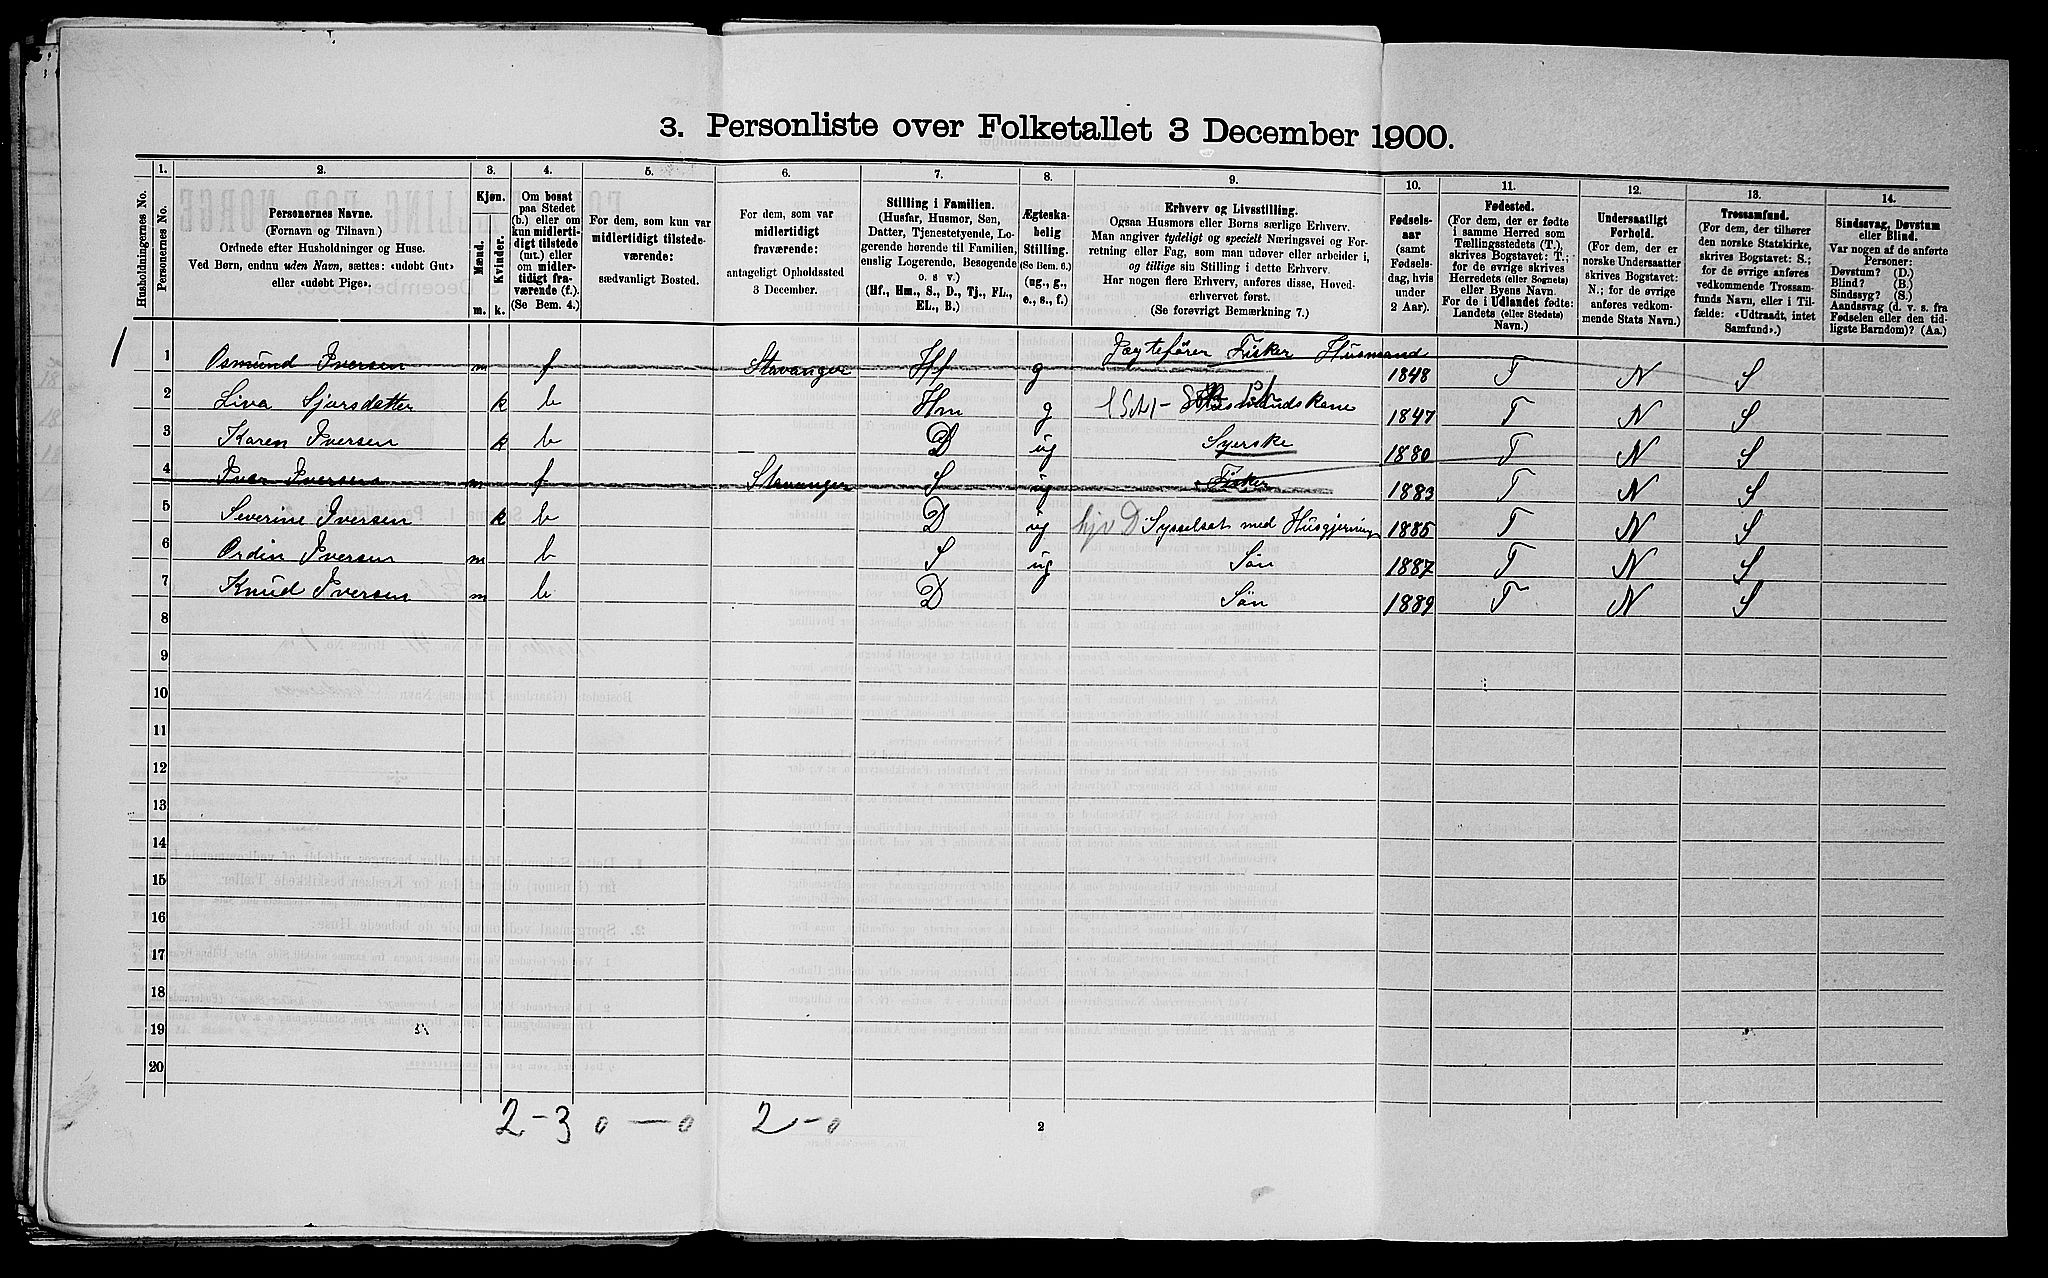 3. Personliste over Folketallet 3 December 1900.
Husholdningernes No.
1.
Personernes No.
2.
Personernes Navne.
(Fornavn og Tilnavn.)
Ordnede efter Husholdninger og Huse.
Ved Børn, endnu uden Navn, sættes: «udøbt Gut»
eller «udøbt Pige».
3.
Kjøn.
Mænd.
Kvinder.
m.
k.
4.
Om bosat
paa Stedet
(b.) eller om
kun midlerti-
digt tilstede
(mt.) eller
om midler-
tidigt fra-
værende (f.)
(Se Bem. 4.)
5.
For dem, som kun var
midlertidigt tilstede-
værende:
sædvanligt Bosted.
6.
For dem, som var
midlertidigt
fraværende:
antageligt Opholdssted
3 December.
7.
Stilling i Familien.
(Husfar, Husmor, Søn,
Datter, Tjenestetyende, Lo-
gerende hørende til Familien,
enslig Logerende, Besøgende
o. s v.)
(Hf., Hm., S., D., Tj., FL.,
EL., B.)
8.
Ægteska-
belig
Stilling.
(Se Bem. 6.)
(ug., g.,
e., s., f.)
9.
Erhverv og Livsstilling.
Ogsaa Husmors eller Børns særlige Erhverv.
Man angiver tydeligt og specielt Næringsvei og For-
retning eller Fag, som man udøver eller arbeider i,
og tillige sin Stilling i dette Erhverv.
Har nogen flere Erhverv, anføres disse, Hoved-
erhvervet først.
(Se forøvrigt Bemærkning 7.)
10.
Fødsels-
aar
(samt
Fødsels-
dag, hvis
under
2 Aar).
11.
Fødested.
(For dem, der er fødte
i samme Herred som
Tællingsstedets (T.),
skrives Bogstavet: T.;
for de øvrige skrives
Herredets (eller Sognets)
eller Byens Navn.
For de i Udlandet fødte:
Landets (eller Stedets)
Navn.)
12.
Undersaatligt
Forhold.
(For dem, der er
norske Undersaatter
skrives Bogstavet:
N.; for de øvrige
anføres vedkom-
mende Stats Navn.)
13.
Trossamfund.
(For dem, der tilhører
den norske Statskirke,
skrives Bogstavet: S.;
for de øvrige anføres
vedkommende Trossam-
funds Navn, eller i Til-
fælde: «Udtraadt, intet
Samfund».)
14.
Sindssvag, Døvstum
eller Blind.
Var nogen af de anførte
Personer:
Døvstum? (D.)
Blind? (B.)
Sindssyg? (S.)
Aandssvag (d. v. s. fra
Fødselen eller den tid-
ligste Barndom)? (Aa.)
1 1 Osmund Iversen m f Stavanger Hf g Jagtefører Fisker Husmand 1848 T N S
2 Liva Sjursdatter k b Hm g Husmandskone 1847 T N S
3 Karen Iversen k b D ug Syerske 1880 T N S
4 Ivar Iversen m f Stavanger S ug Fisker 1883 T N S
5 Severine Iversen k b D ug hjv D Sysselsat med Husgjerning 1885 T N S
6 Ordin Iversen m b S ug Søn 1887 T N S
7 Knud Iversen m b D Søn 1889 T N S
8
9
10
11
12
13
14
15
16
17
18
19
20
2-3 0-0 2-0
2